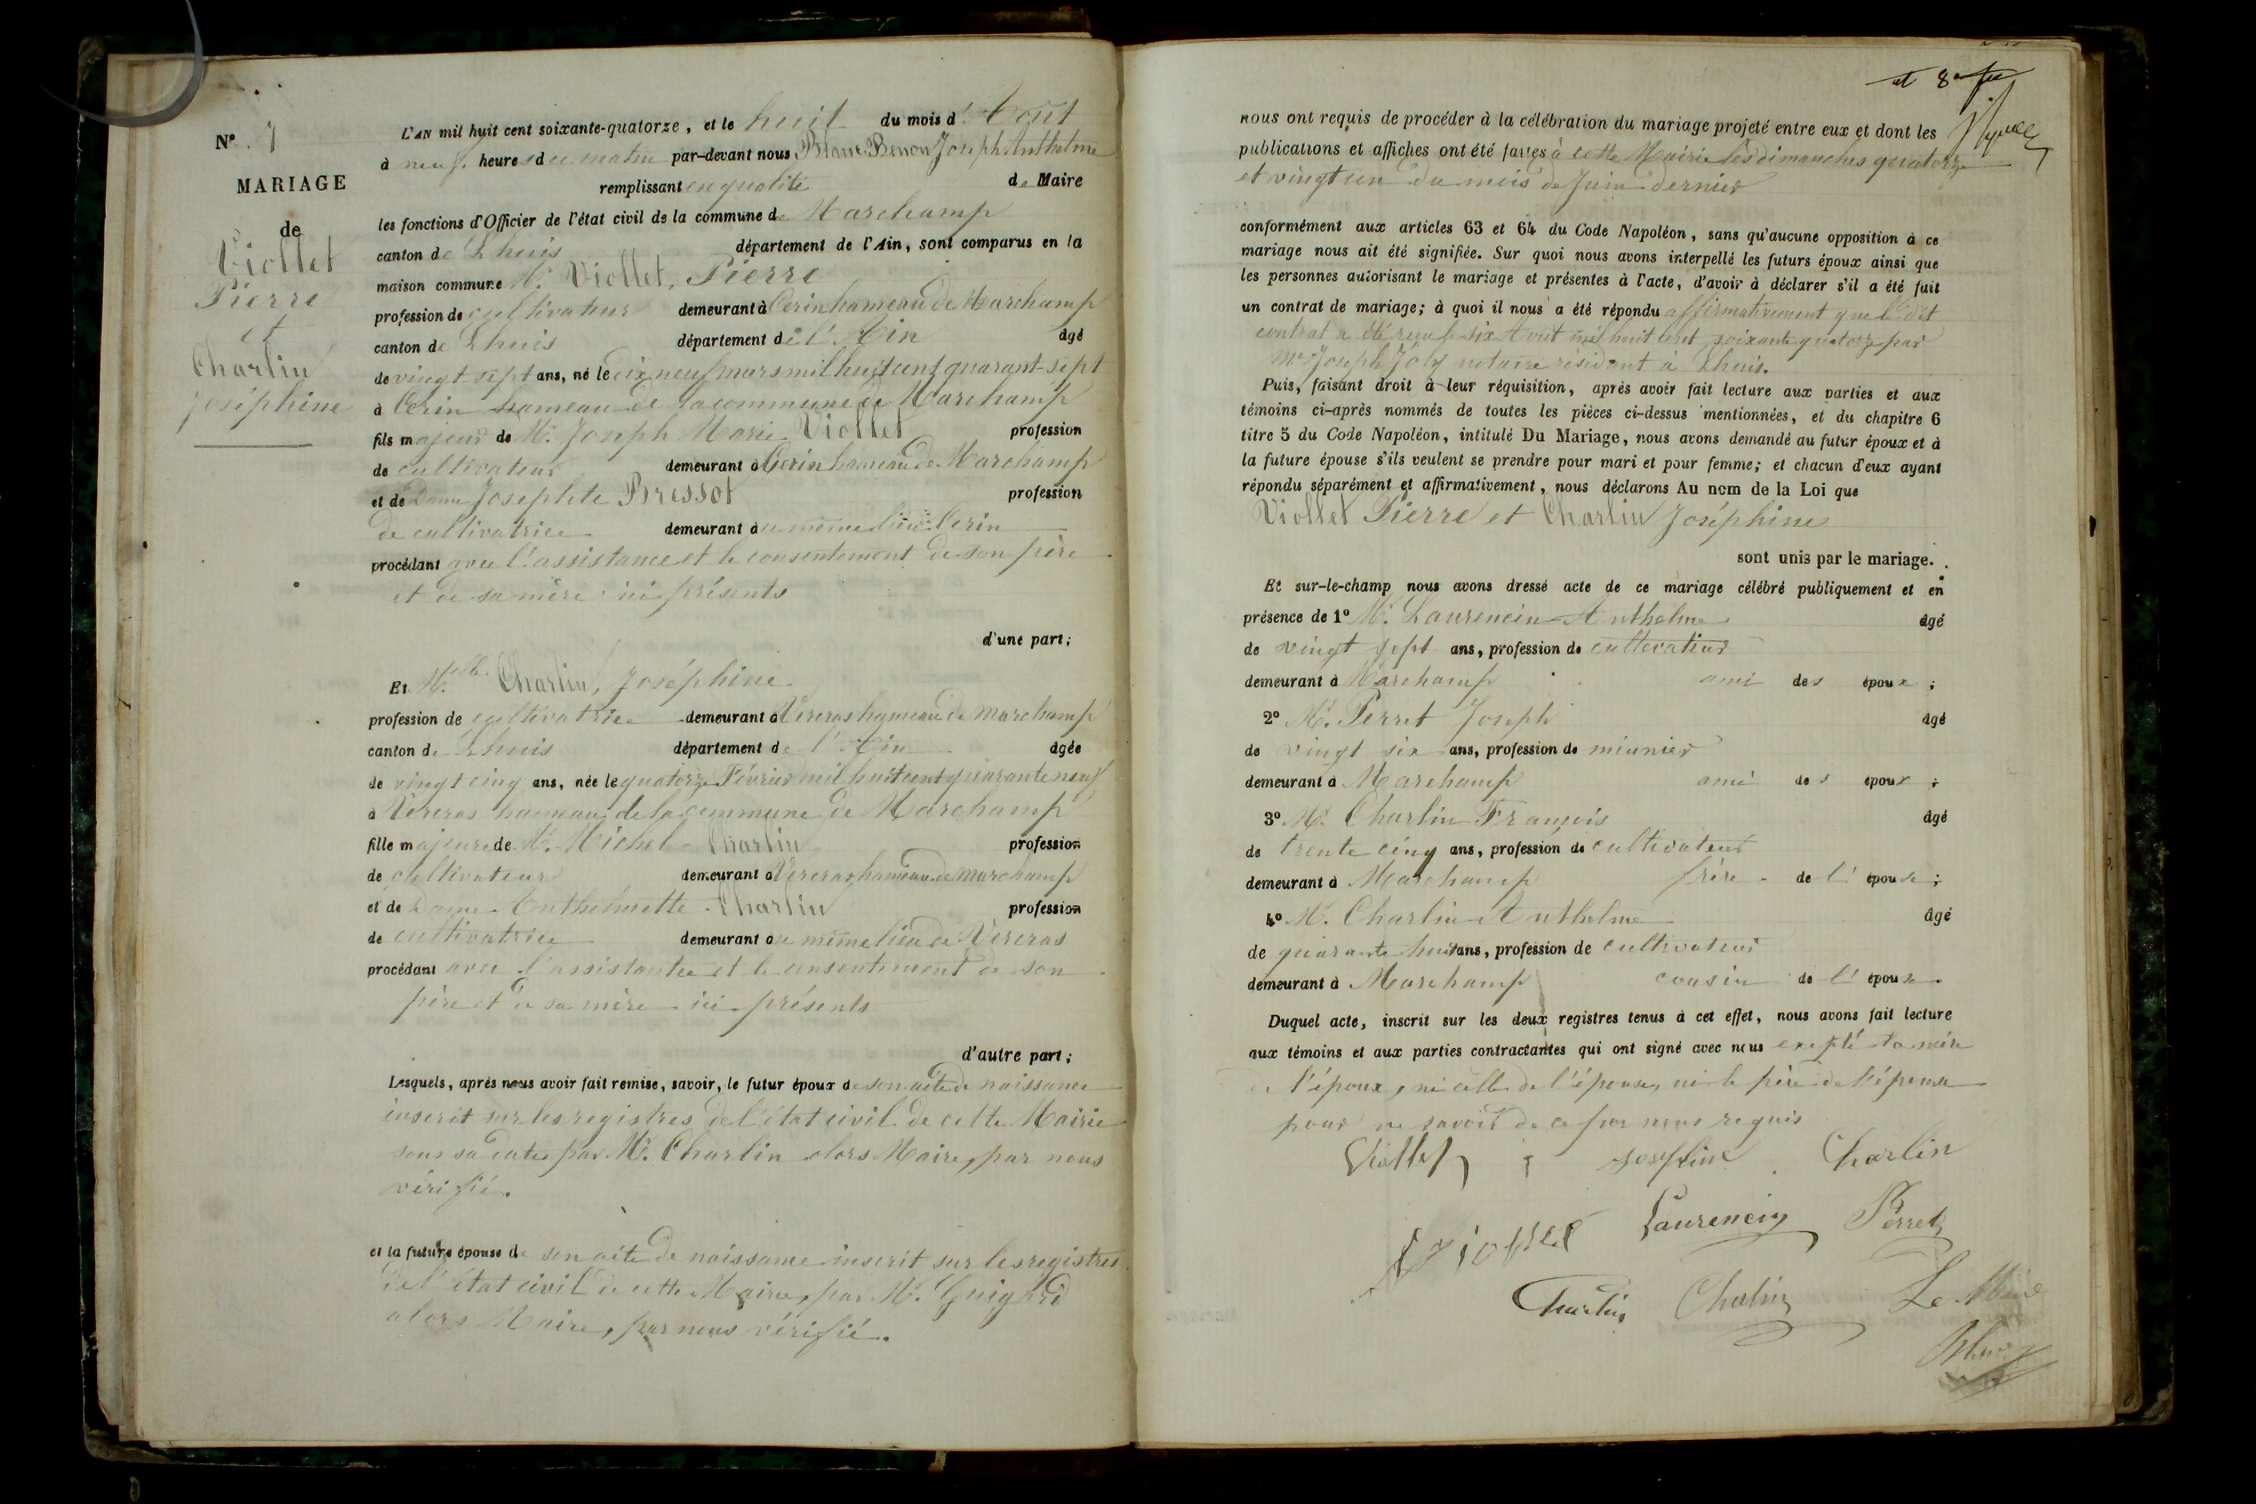 N° 7
MARIAGE
de
Viollet
Pierre
et
Charlin
Joséphine
L'AN mil huit cent soixante-quatorze, et le huit du mois d'Août
à neuf heures du matin par-devant nous Blanc Benon Joseph Anthelme
remplissant en qualité de Maire
les fonctions d'Officier de l'état civil de la commune de Marchamp
canton de Lhuis département de l'Ain, sont comparus en la
maison commune Mr. Viollet, Pierre
profession de cultivateur demeurant à Cerin hameau de Marchamp
canton de Lhuis département de l'Ain âgé
de vingt sept ans, né le dix neuf mars mil huit cent quarant-sept
à Cerin hameau de la commune de Marchamp
fils majeur de Mr. Joseph Marie Viollet profession
de cultivateur demeurant à Cerin hameau de Marchamp
et de Dame Josephte Bressot profession
de cultivatrice demeurant au même lieu Cerin
procédant avec l'assistance et le consentement de son père
et de sa mère ici présents
d'une part;
Et Mlle Charlin, Joséphine
profession de cultivatrice demeurant à Véreras hameau de Marchamp
canton de Lhuis département de l'Ain âgée
de vingt cinq ans, née le quatorze Février mil huit cent quarante neuf
à Véreras hameau de la commune de Marchamp
fille majeure de Mr. Michel Charlin profession
de cultivateur demeurant à Véreras hameau de Marchamp
et de Dame Anthelmette Charlin profession
de cultivatrice demeurant au même lieu de Véreras
procédant avec l'assistance et le consentement de son
père et de sa mère ici présents
d'autre part;
Lesquels, après nous avoir fait remise, savoir, le futur époux de son acte de naissance
inscrit sur les registres de l'état civil de cette Mairie
sous sa date par Mr. Charlin alors Maire, par nous
vérifié.
et la future épouse de son acte de naissance inscrit sur les registres
de l'état civil de cette Mairie, par Mr. Guignard
alors Maire, par nous vérifié.
nous ont requis de procéder à la célébration du mariage projeté entre eux et dont les
publications et affiches ont été faites à cette Mairie les dimanches quatorze
et vingt un du mois de Juin dernier
conformément aux articles 63 et 64 du Code Napoléon, sans qu'aucune opposition à ce
mariage nous ait été signifiée. Sur quoi nous avons interpellé les futurs époux ainsi que
les personnes autorisant le mariage et présentes à l'acte, d'avoir à déclarer s'il a été fait
un contrat de mariage; à quoi il nous a été répondu affirmativement que le dit
contrat a été reçu le six Août mil huit cent soixante quatorze par
Me Joseph Joly notaire résidant à Lhuis.
Puis, faisant droit à leur réquisition, après avoir fait lecture aux parties et aux
témoins ci-après nommés de toutes les pièces ci-dessus mentionnées, et du chapitre 6
titre 5 du Code Napoléon, intitulé Du Mariage, nous avons demandé au futur époux et à
la future épouse s'ils veulent se prendre pour mari et pour femme; et chacun d'eux ayant
répondu séparément et affirmativement, nous déclarons Au nom de la Loi que
Viollet Pierre et Charlin Joséphine
sont unis par le mariage.
Et sur-le-champ nous avons dressé acte de ce mariage célébré publiquement et en
présence de 1° Mr. Laurencin Anthelme âgé
de vingt sept ans, profession de cultivateur
demeurant à Marchamp ami des époux;
2° Mr. Perret Joseph âgé
de vingt six ans, profession de meunier
demeurant à Marchamp ami des époux;
3° Mr. Charlin François âgé
de trente cinq ans, profession de cultivateur
demeurant à Marchamp frère de l'épouse;
4° Mr. Charlin Anthelme âgé
de quarante huit ans, profession de cultivateur
demeurant à Marchamp cousin de l'épouse.
Duquel acte, inscrit sur les deux registres tenus à cet effet, nous avons fait lecture
aux témoins et aux parties contractantes qui ont signé avec nous excepté la mère
de l'époux, ni celle de l'épouse, ni le père de l'épouse
pour ne savoir de ce par nous requis
Viollet Josephine Charlin
Viollet Laurencin Perret
Charlin Charlin Le Maire
Blanc